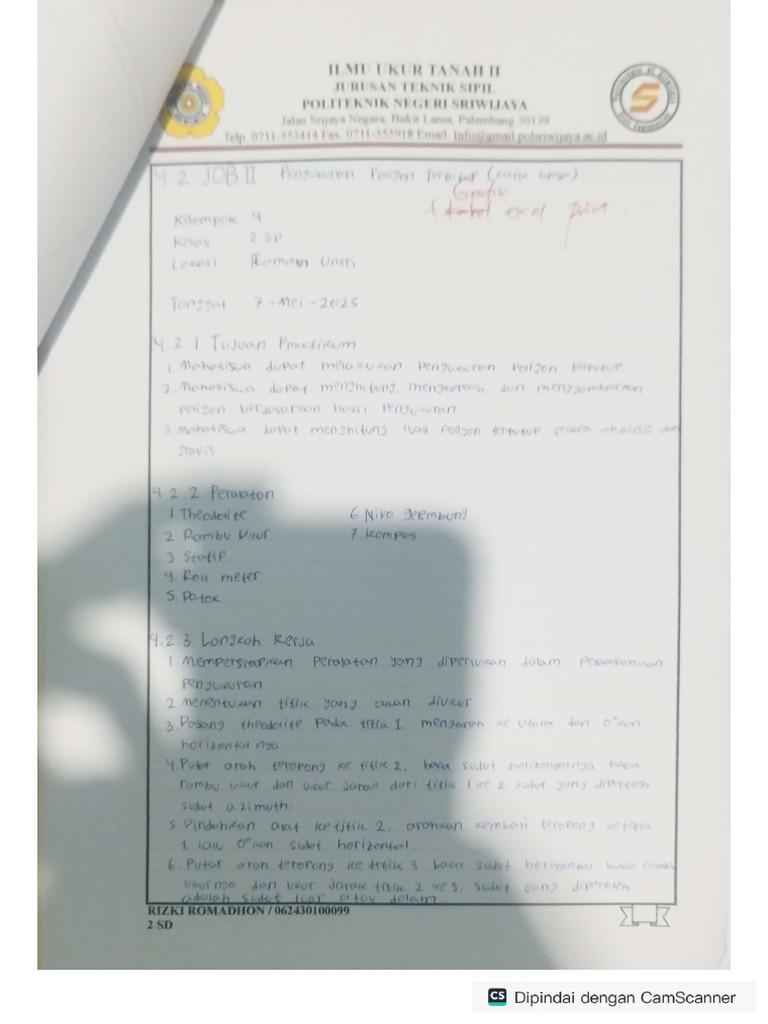 ILMU UKUR TANAH II
JURUSAN TEKNIK SIPIL
POLITEKNIK NEGERI SRIWIJAYA
Jalan Srijaya Negara, Bukit Lama, Palembang 30139
Telp. 0711-353414 Fax. 0711-355918 Email. Info@gmail.polsriwijaya.ac.id
4.2 JOB II Pengukuran Poligon Tertutup
Grafik
+ tabel excel print.
Kelompok : 4
Kelas 2 SD
Lokasi : Taman Unsri
Tanggal : 7 - Mei - 2025
4.2.1 Tujuan Praktikum
1. Mahasiswa dapat melakukan pengukuran poligon tertutup.
2. Mahasiswa dapat menghitung, mengkoreksi, dan menggambarkan
poligon berdasarkan hasil pengukuran.
3. Mahasiswa dapat menghitung luas poligon tertutup secara analisis dan
grafis
4.2.2 Peralatan
1. Theodolite
2. Rambu Ukur
3. Statif
4. Roll meter
5. Patok
6. Nivo gelembung
7. Kompas
4.2.3 Langkah Kerja
1. Mempersiapkan Peralatan yang diperlukan dalam Pelaksanaan
Pengukuran
2. Menentukan titik yang akan diukur
3. Pasang theodolite Pada titik 1 mengarah ke Utara dan 0°kan
horizontal nya
4. Putar arah teropong ke titik 2, baca sudut horizontalnya baca
rambu ukur dan ukur Jarak dari titik 1 ke 2 sudut yang diperoleh
sudut azimuth.
5. Pindahkan alat ke titik 2, arahkan kembali teropong ke titik
1 lalu 0°kan sudut horizontal.
6. Putar arah teropong ke titik 3 baca sudut horizontal baca rambu
ukurnya dan ukur Jarak titik 2 ke 3. Sudut yang diperoleh
adalah sudut luar atau dalam.
RIZKI ROMADHON / 062430100099
2 SD
CS Dipindai dengan CamScanner